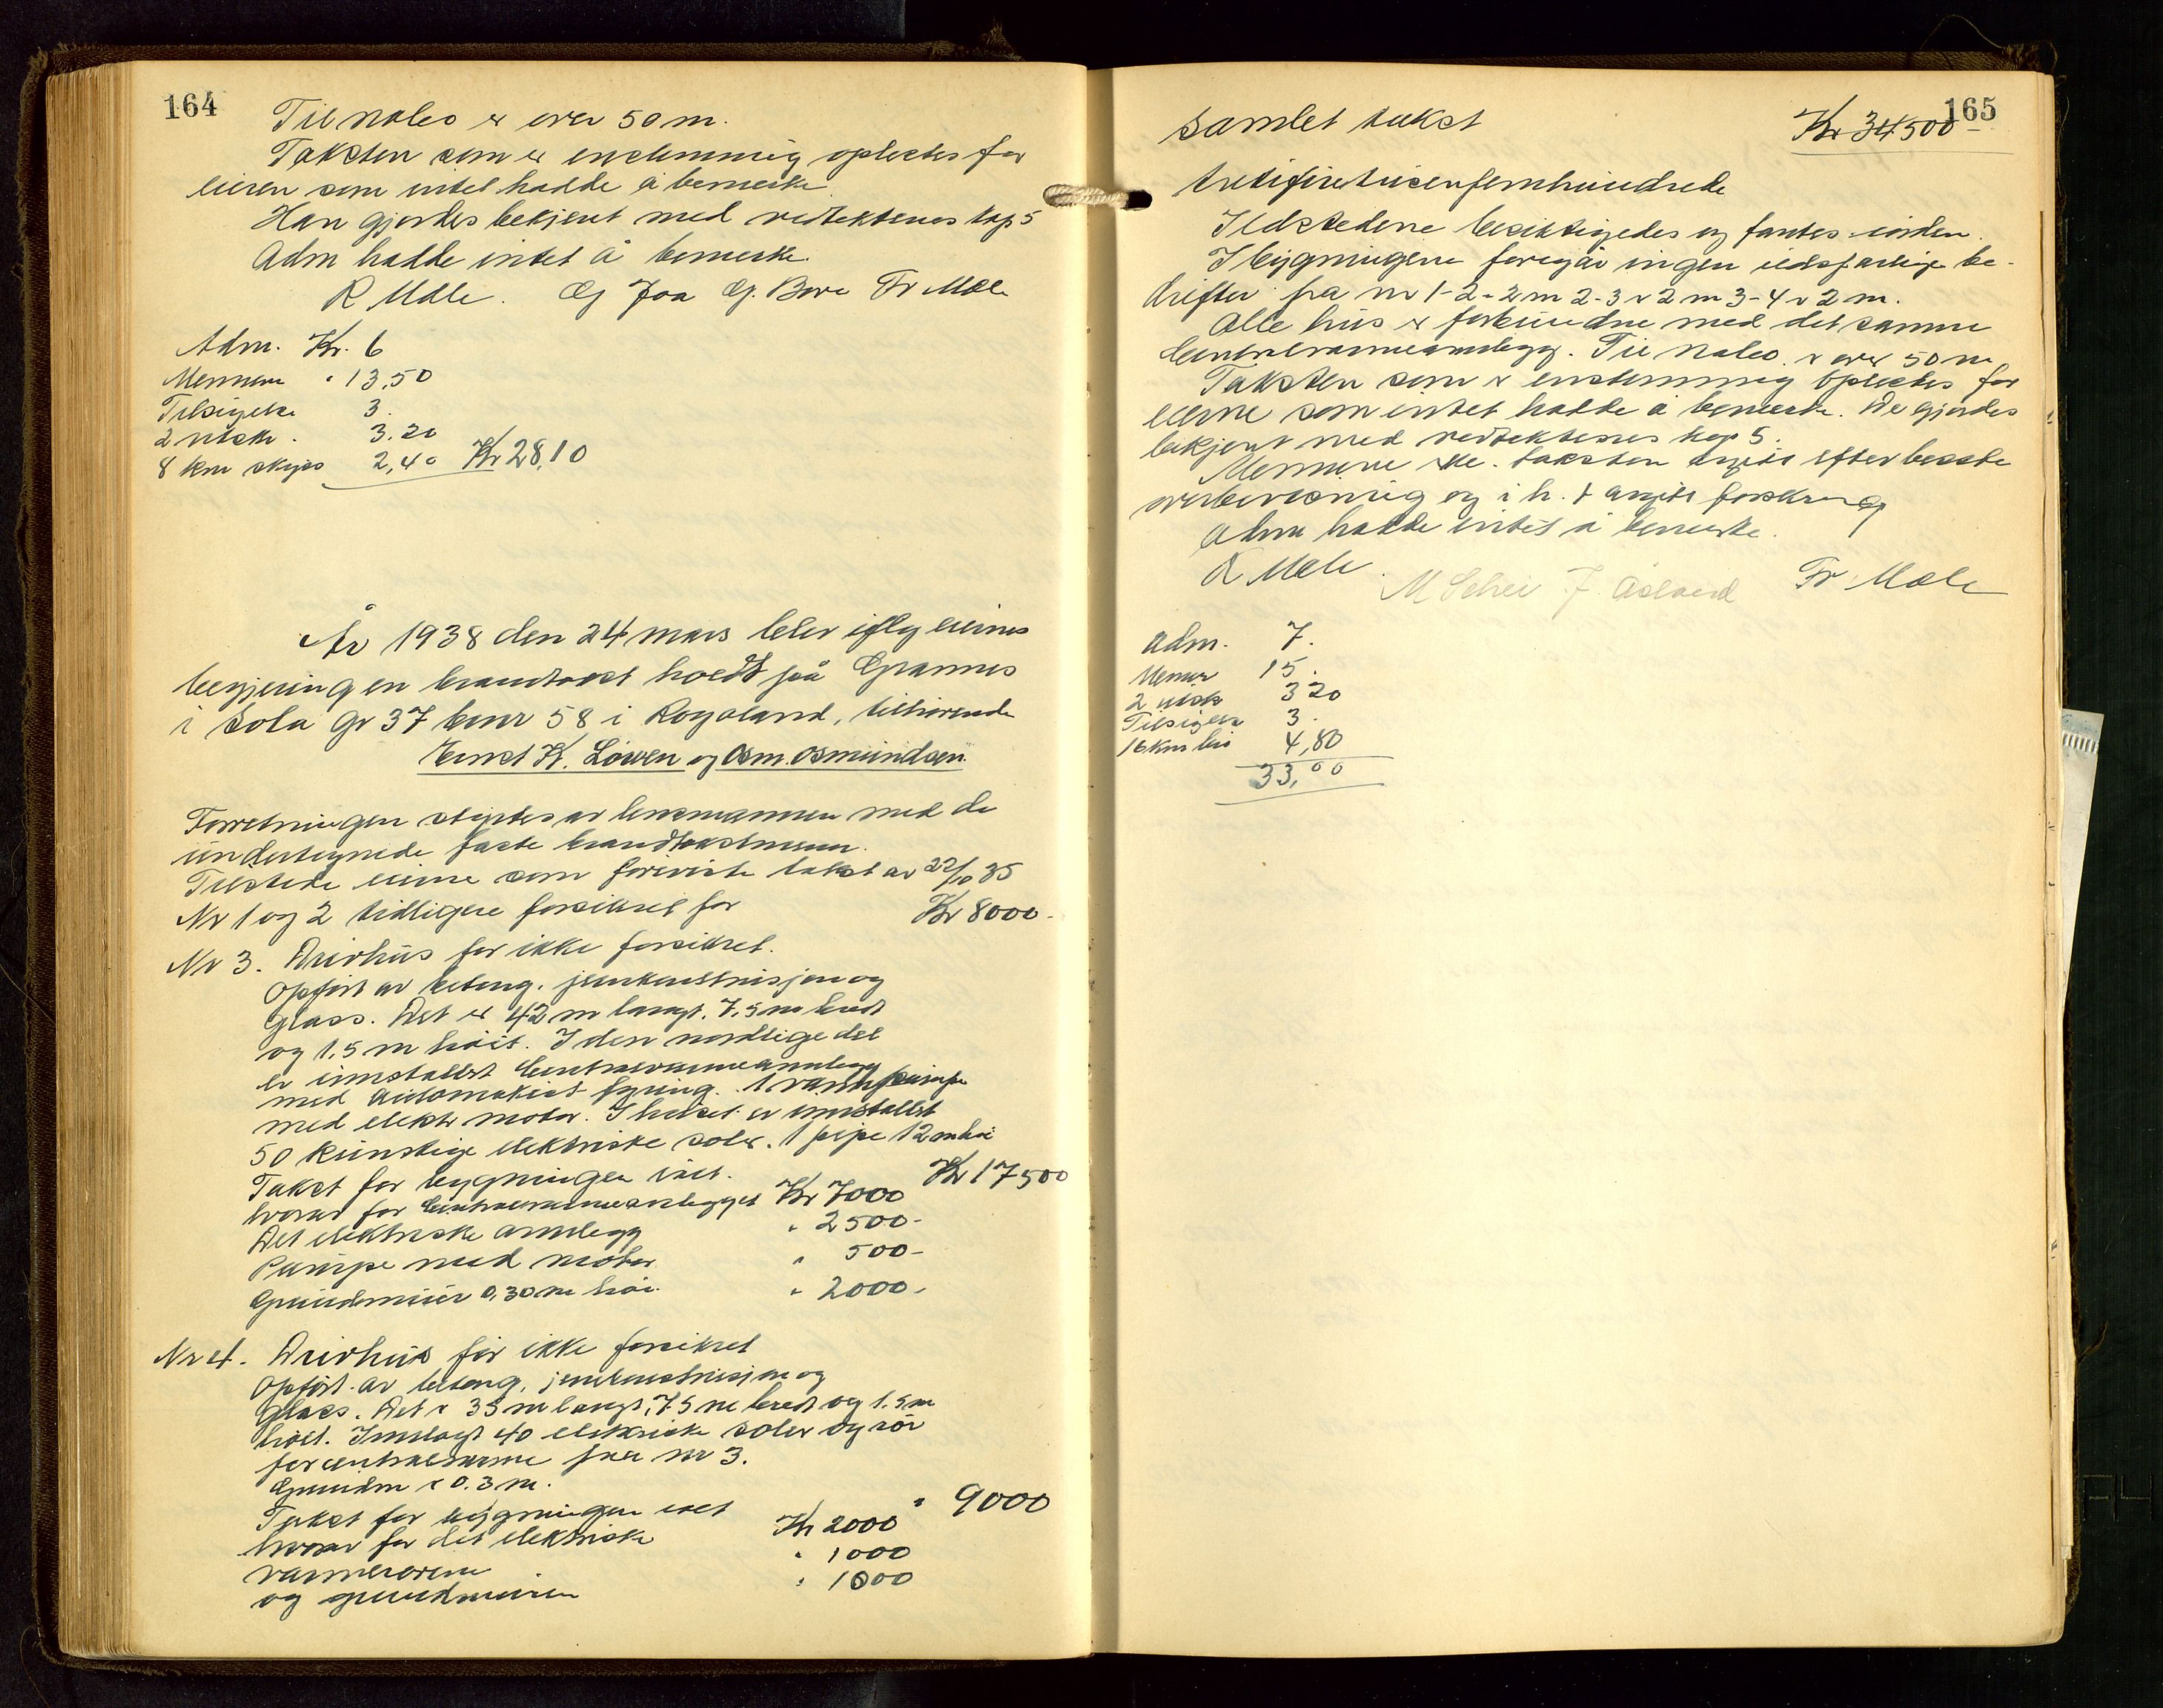 164
Til nabo er over 50 m.
Taksten som er enstemmig oplestes for
eieren som intet hadde å bemerke.
Han gjordes bekjent med vedtektenes kap 5
Adm hadde intet å bemerke.
R Mæle. Og Joa G. Bore Tr Mæle
Adm. Kr. 6
Mennene " 13,50
Tilsigelse 3.
2 utskr. 3.20
8 km skyss 2,40 Kr 28,10
År 1938 den 24 mars blev iflg eiernes
begjering en branntakst holdt på Grannes
i Sola gr 37 bnr 58 i Rogaland, tilhørende
Ernst K. Löwen og Osm. Osmundsen.
Forretningen styrtes av lensmannen med de
undertegnede faste brandtakstmenn.
Tilstede eierne som foreviste takst av 22/10 35
Nr 1 og 2 tidligere forsikret for Kr 8000.-
Nr 3. Drivhus før ikke forsikret.
Opført av betong, jernkonstruksjon og
Glass. Det er 42 m langt, 7,5 m bredt
og 1,5 m høit. I den nordlige del
er installert Centralvarmeannlegg
med automatisk fyring. 1 vannpumpe
med elektr motor. I huset er installert
50 kunstige elektriske soler. 1 pipe 12 m høi
Takst for bygningen ialt. Kr 17500
hvorav for Centralvarmeanlegget Kr 7000
Det elektriske annlegg " 2500-
Pumpe med motor " 500-
Grundmur 0,30 m høi. " 2000.
Nr 4. Drivhus før ikke forsikret
Opført av betong, jernkonstruksjon og
Glass. Det er 35 m langt, 7,5 m bredt og 1.5 m
høit. Innlagt 40 elektriske soler og rör
for centralvarme fra nr 3.
Grundm er 0.3 m.
Takst for bygningen ialt " 9000
hvorav for det elektriske Kr 2000
varmerørene " 1000
og grundmuren " 1000
165
Samlet takst Kr 34500-
trettifiretusenfemhundrede
Ildstedene besiktigedes og fantes iorden.
I bygningene foregår ingen ildsfarlige be-
drifter fra nr 1-2 = 2 m 2-3 er 2 m 3-4 er 2 m.
Alle hus er forbundne med det samme
Centralvarmeannlegg. Til nabo er over 50 m
Taksten som er enstemmig oplestes for
eierne som intet hadde å bemerke. De gjordes
bekjent med vedtektenes kap 5.
Mennene taksten avgitt efter beste
overbevisning og i h. t avgitt forsikring
Adm hadde intet å bemerke.
R Mæle. M Schei J. Aasland Tr Mæle
Adm. 7.
Menner 15.
2 utsk 3 20
Tilsigelse 3.
16 km bil 4,80
33,00